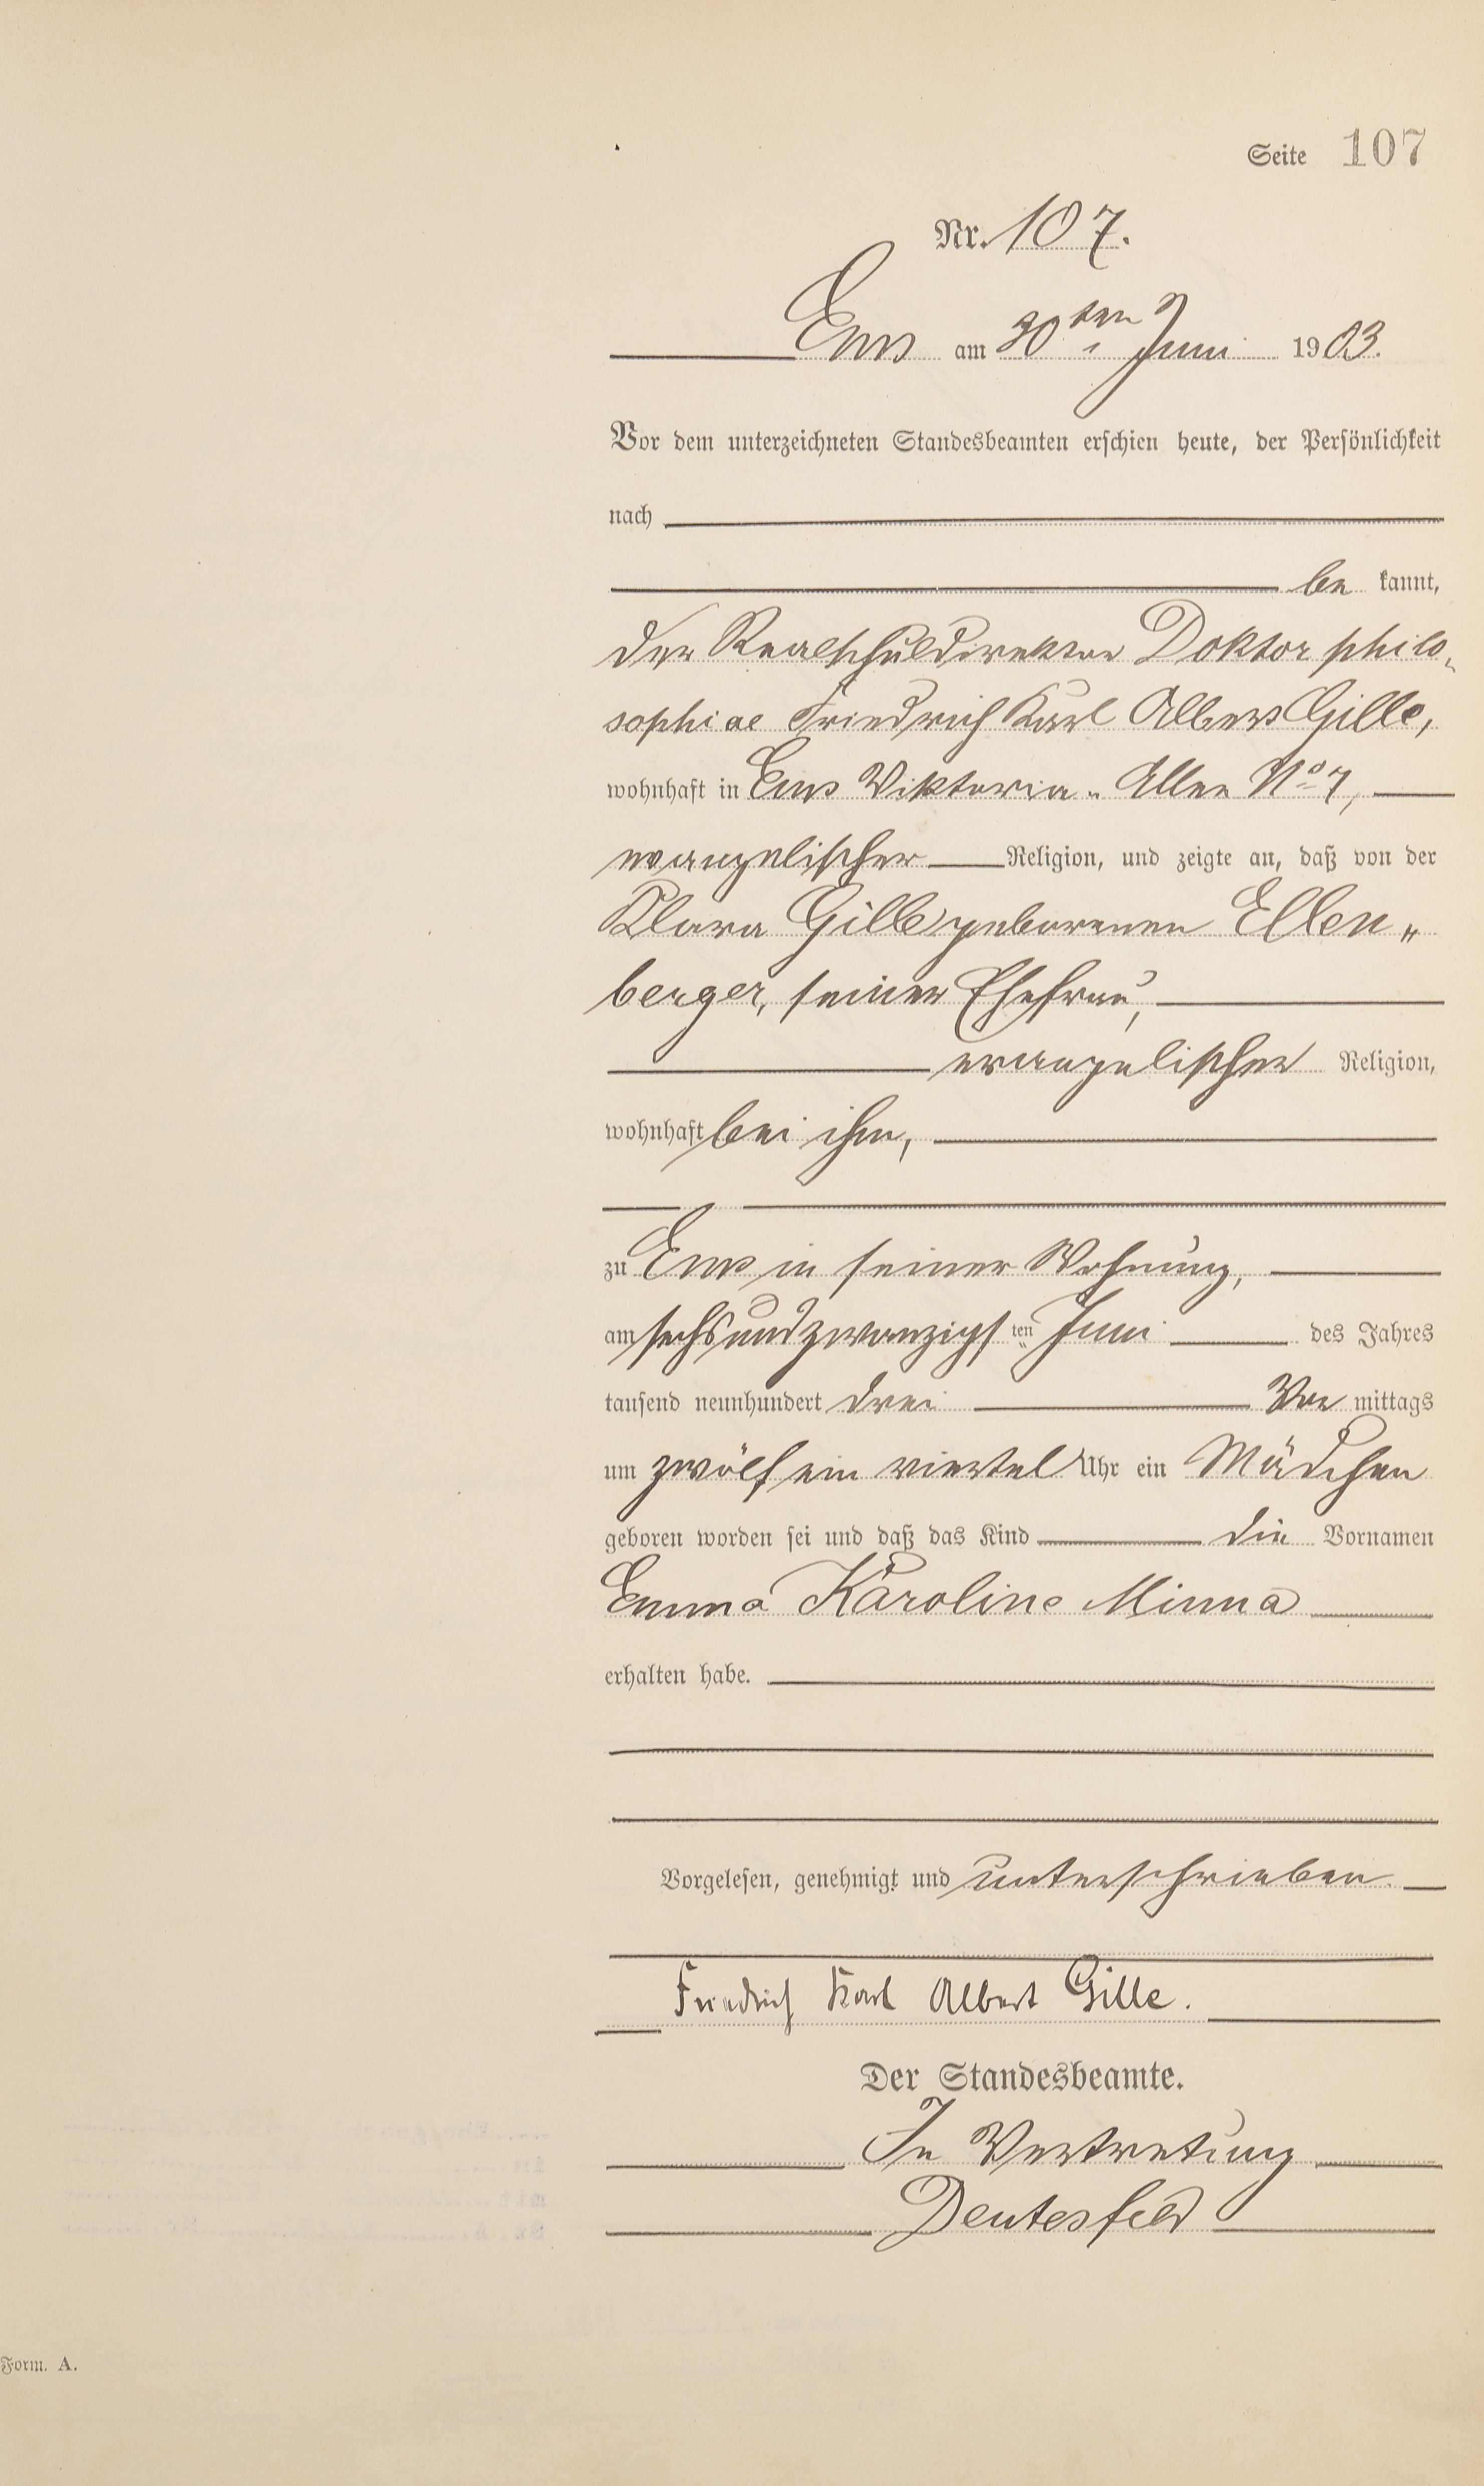 Seite 107
Nr. 107.
Ems am 30ten Juni 1903.
Vor dem unterzeichneten Standesbeamten erschien heute, der Persönlichkeit
nach
be kannt,
der Realschuldirektor Doktor philo-
sophiae Friedrich Karl Albert Gille,
wohnhaft in Ems Viktoria-Allee No 7,
evangelischer Religion, und zeigte an, daß von der
Klara Gille geborenen Ellen-
berger, seiner Ehefrau,
evangelischer Religion,
wohnhaft bei ihm,
zu Ems in seiner Wohnung,
am sechsundzwanzigsten Juni des Jahres
tausend neunhundert drei Vor mittags
um zwölf ein viertel Uhr ein Mädchen
geboren worden sei und daß das Kind die Vornamen
Emma Karoline Minna
erhalten habe.
Vorgelesen, genehmigt und unterschrieben.
Friedrich Karl Albert Gille.
Der Standesbeamte.
In Vertretung
Deutesfeld
Form. A.